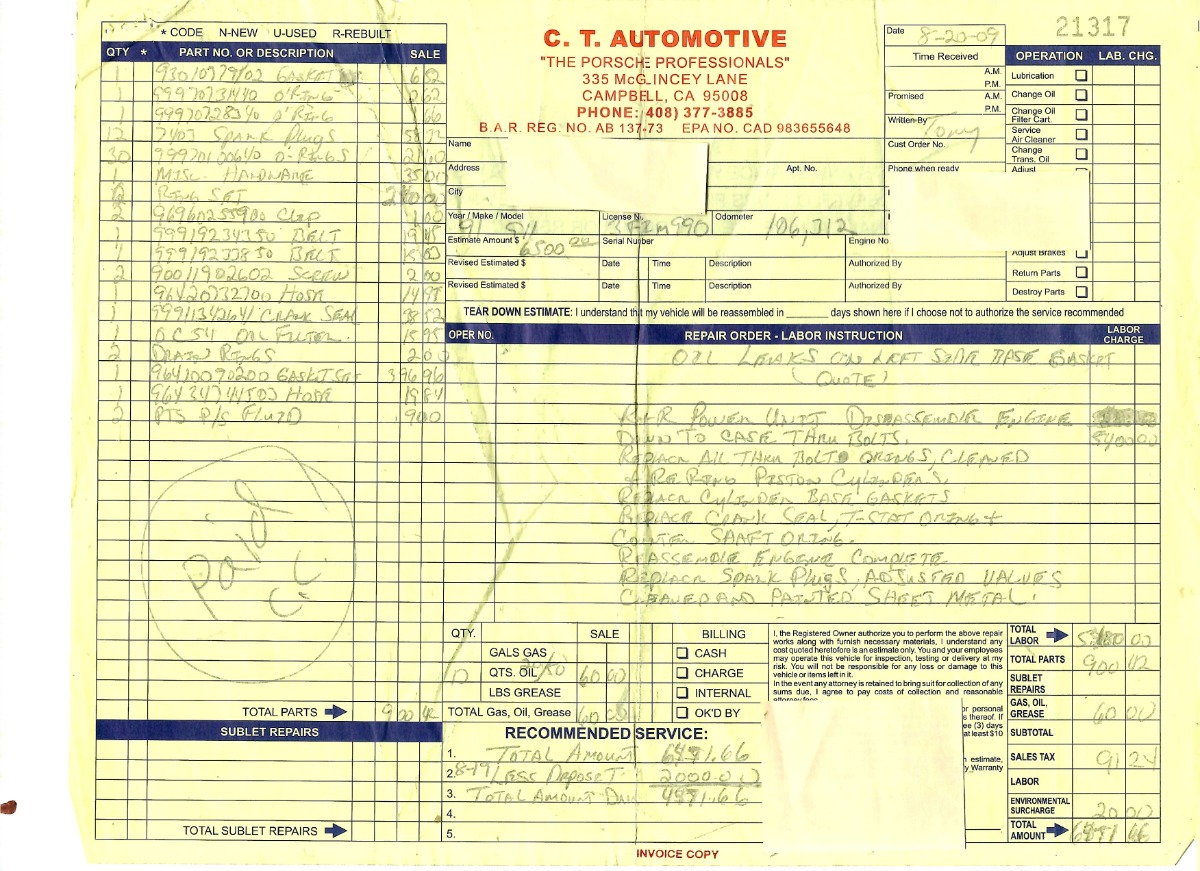 * CODE N-NEW U-USED R-REBUILT
QTY * PART NO. OR DESCRIPTION SALE
1 GASKET 6 82
1 99970731440 O'RING 62
1 99970728340 O'RING 66
12 7403 SPARK PLUGS
30 99970100640 O-RINGS 21 60
1 MISC. HARDWARE 35 00
RING SET
2 96960255900 CLIP 1 00
1 99919234350 BELT 19 45
1 99919233850 BELT
2 90011902602 SCREW 2 00
1 96420732700 HOSE 14 98
1 99911342641 CRANK SEAL 38 52
1 OIL FILTER. 15 95
2 DRAIN RINGS 2 00
1 96410090200 GASKET SET 396 96
1 HOSE 19 84
2 PTS P/S FLUID 9 00
Paid
C.C.
TOTAL PARTS 900 42
SUBLET REPAIRS
TOTAL SUBLET REPAIRS
C. T. AUTOMOTIVE
"THE PORSCHE PROFESSIONALS"
335 McGLINCEY LANE
CAMPBELL, CA 95008
PHONE: (408) 377-3885
B.A.R. REG. NO. AB 137-73 EPA NO. CAD 983655648
Date 8-20-09
21317
Time Received
A.M.
P.M.
Promised A.M.
P.M.
Written By Tony
Cust Order No.
Phone when ready
OPERATION LAB. CHG.
Lubrication
Change Oil
Change Oil
Filter Cart.
Service
Air Cleaner
Change
Trans. Oil
Adjust
Adjust Brakes
Return Parts
Destroy Parts
Name
Address Apt. No.
City
Year / Make / Model 91 911 License No. Odometer 106,312
Estimate Amount $ 6500 00 Serial Number Engine No
Revised Estimated $ Date Time Description Authorized By
Revised Estimated $ Date Time Description Authorized By
TEAR DOWN ESTIMATE: I understand that my vehicle will be reassembled in ______ days shown here if I choose not to authorize the service recommended
OPER NO. REPAIR ORDER - LABOR INSTRUCTION LABOR CHARGE
OIL LEAKS ON LEFT SIDE BASE GASKET
(QUOTE)
R+R POWER UNIT DISASSEMBLE ENGINE
DOWN TO CASE THRU BOLTS. 5400 00
REPLACE ALL THRU BOLT ORINGS, CLEANED
+ RERING PISTON CYLINDERS.
REPLACE CYLINDER BASE GASKETS
REPLACE CRANK SEAL, T-STAT ORING +
COUNTER SHAFT ORING.
REASSEMBLE ENGINE COMPLETE
REPLACE SPARK PLUGS, ADJUSTED VALVES
CLEANED AND PAINTED SHEET METAL.
QTY. SALE BILLING
GALS GAS CASH
12 QTS. OIL 20/50 60 00 CHARGE
LBS GREASE INTERNAL
TOTAL Gas, Oil, Grease 60 00 OK'D BY
I, the Registered Owner authorize you to perform the above repair
works along with furnish necessary materials, I understand any
cost quoted heretofore is an estimate only. You and your employees
may operate this vehicle for inspection, testing or delivery at my
risk. You will not be responsible for any loss or damage to this
vehicle or items left in it.
In the event any attorney is retained to bring suit for collection of any
sums due, I agree to pay costs of collection and reasonable
attorney fees
or personal
s thereof. If
ee (3) days
at least $10
estimate,
y Warranty
RECOMMENDED SERVICE:
1. TOTAL AMOUNT
2. 8-19 LESS DEPOSIT 2000.00
3. TOTAL AMOUNT DUE
4.
5.
TOTAL LABOR
TOTAL PARTS 900 42
SUBLET REPAIRS
GAS, OIL, GREASE 60 00
SUBTOTAL
SALES TAX 91 24
LABOR
ENVIRONMENTAL SURCHARGE 20 00
TOTAL AMOUNT
INVOICE COPY